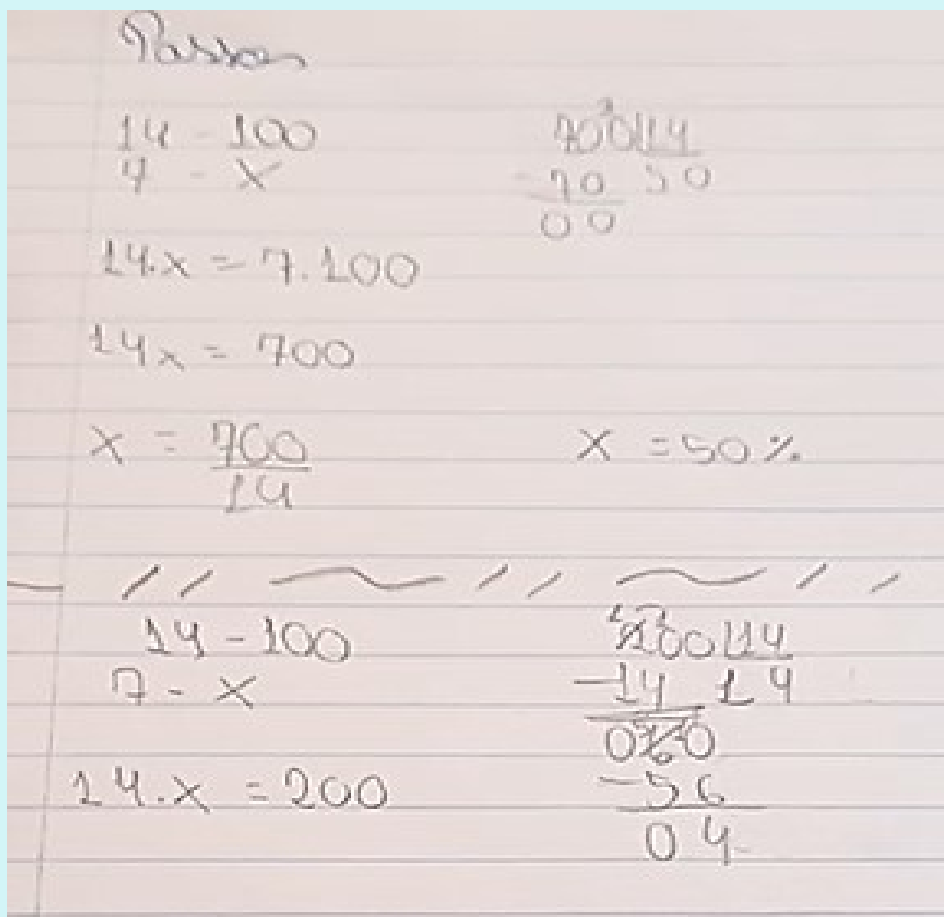 Passos
14 - 100
7 - X
700 14
-70 50
00
14.x = 7.100
14x = 700
x = 700
14
x = 50%
14 - 100
7 - x
200 14
-14 14
060
-56
04
14.x = 200